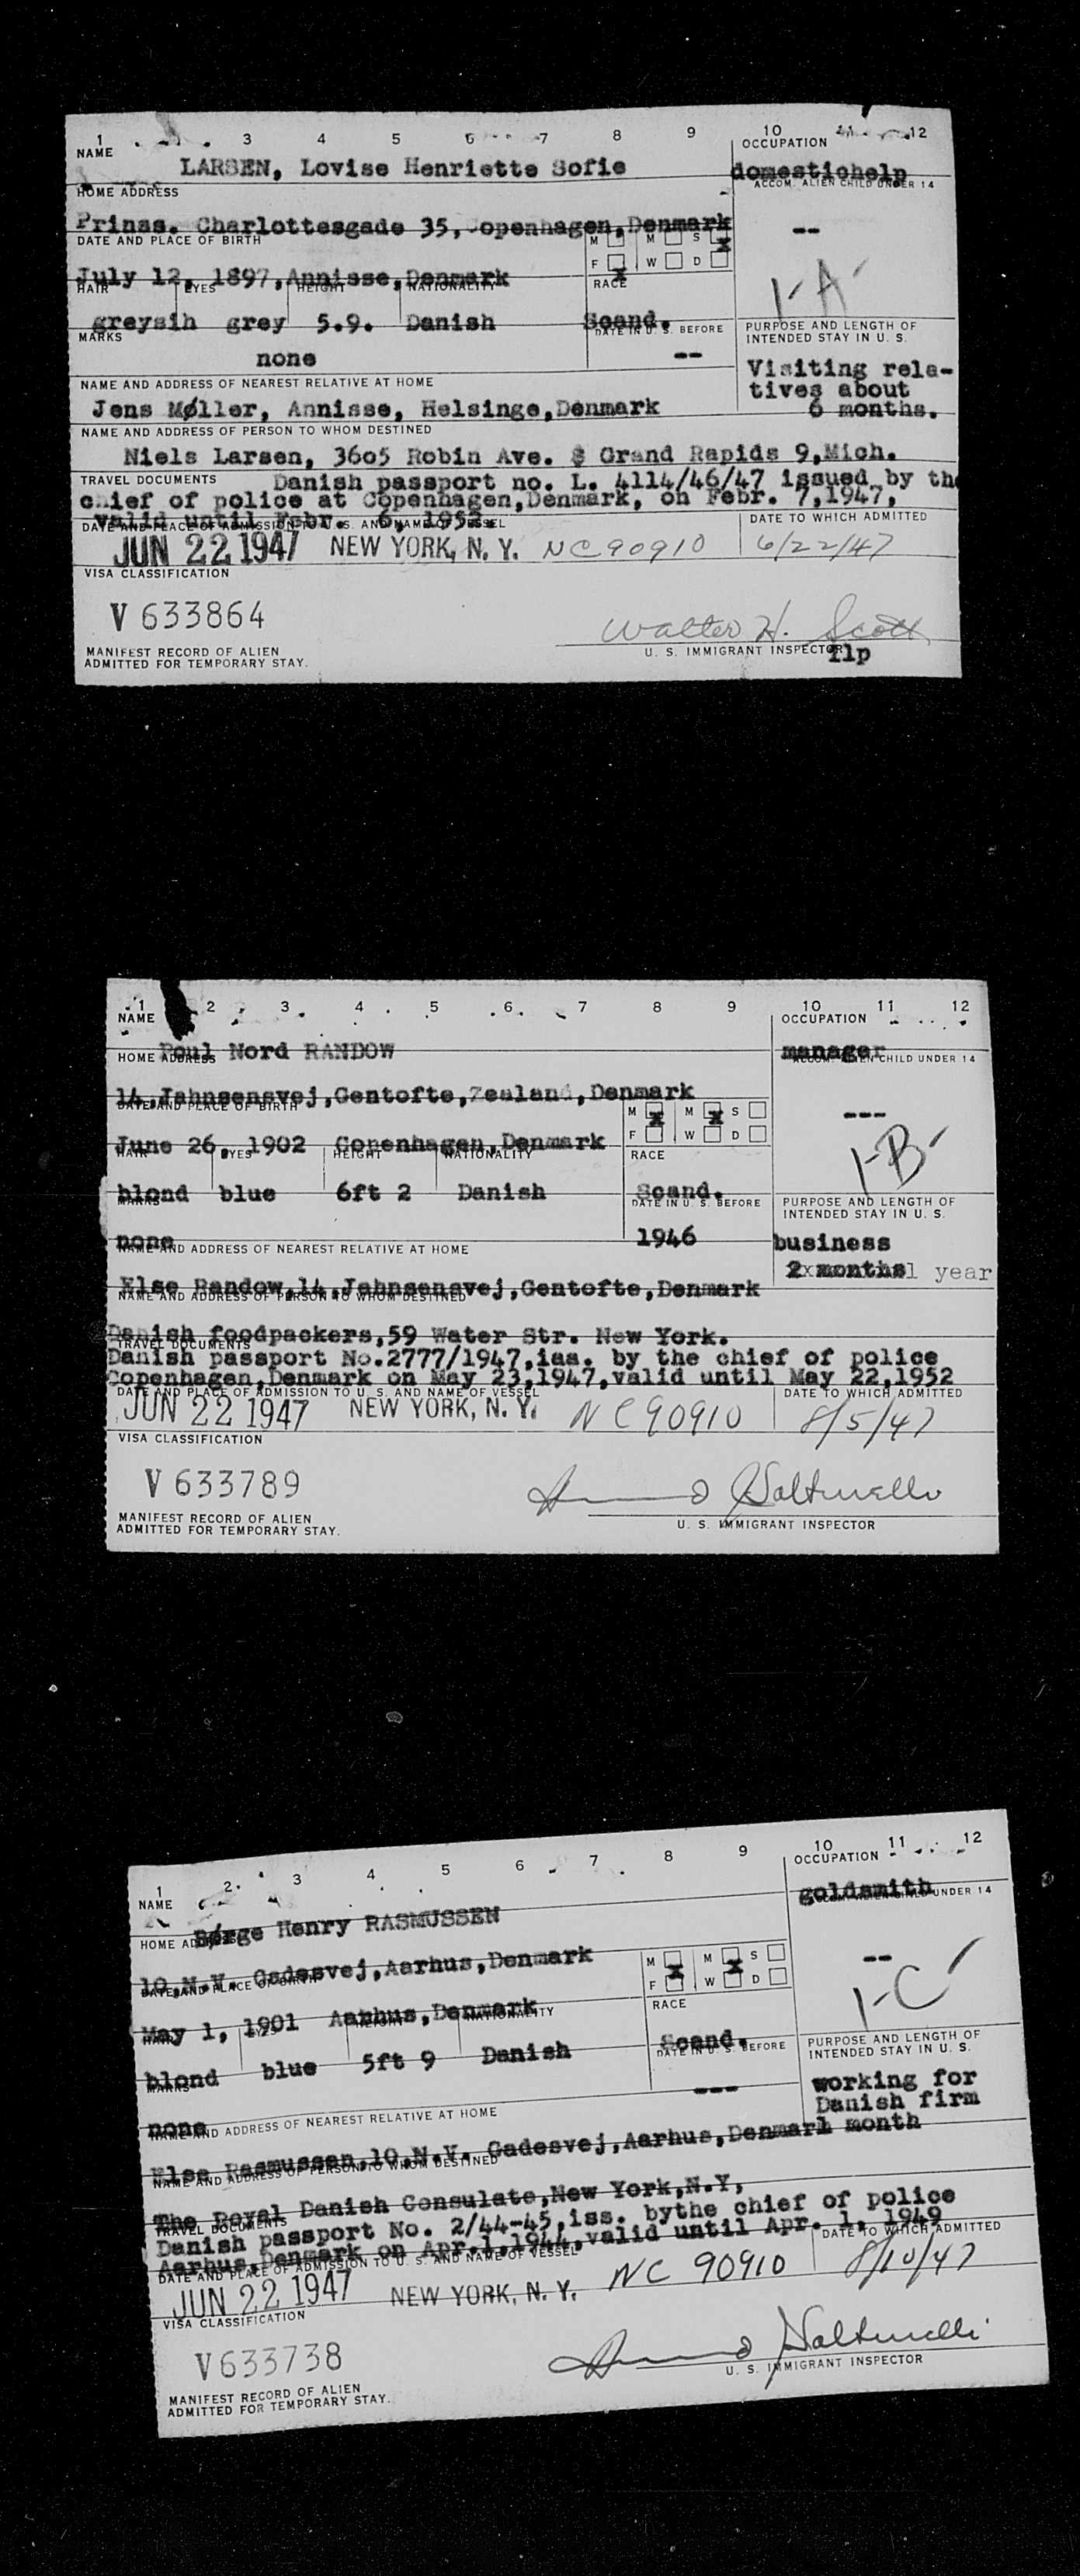 1 3 4 5 6 7 8 9 10 11 12
NAME OCCUPATION
LARSEN, Lovise Henriette Sofie domestichelp
HOME ADDRESS ACCOM. ALIEN CHILD UNDER 14
Prinss. Charlottesgade 35, Copenhagen, Denmark --
DATE AND PLACE OF BIRTH M M S x
F x W D
July 12, 1897, Annisse, Denmark 1-A
HAIR EYES HEIGHT NATIONALITY RACE
greysih grey 5.9. Danish Scand.
MARKS DATE IN U. S. BEFORE PURPOSE AND LENGTH OF
INTENDED STAY IN U. S.
none -- Visiting rela-
tives about
6 months.
NAME AND ADDRESS OF NEAREST RELATIVE AT HOME
Jens Møller, Annisse, Helsinge, Denmark
NAME AND ADDRESS OF PERSON TO WHOM DESTINED
Niels Larsen, 36o5 Robin Ave. $ Grand Rapids 9, Mich.
TRAVEL DOCUMENTS Danish passport no. L. 4114/46/47 issued by the
chief of police at Copenhagen, Denmark, on Febr. 7, 1947,
valid until Febr. 6, 1952.
DATE AND PLACE OF ADMISSION TO U. S. AND NAME OF VESSEL DATE TO WHICH ADMITTED
JUN 22 1947 NEW YORK, N. Y. NC90910 6/22/47
VISA CLASSIFICATION
V 633864
Walter H. Scott
MANIFEST RECORD OF ALIEN U. S. IMMIGRANT INSPECTOR
ADMITTED FOR TEMPORARY STAY.
1 2 3 4 5 6 7 8 9 10 11 12
NAME OCCUPATION
Poul Nord RANDOW manager
HOME ADDRESS ACCOM. ALIEN CHILD UNDER 14
14, Jahnsensvej, Gentofte, Zealand, Denmark ---
DATE AND PLACE OF BIRTH M x M x S
F W D
June 26, 1902 Copenhagen, Denmark 1-B
HAIR EYES HEIGHT NATIONALITY RACE
blond blue 6ft 2 Danish Scand.
MARKS DATE IN U. S. BEFORE PURPOSE AND LENGTH OF
INTENDED STAY IN U. S.
none 1946 business
2 months 1 year
NAME AND ADDRESS OF NEAREST RELATIVE AT HOME
Else Randow, 14, Jahnsensvej, Gentofte, Denmark
NAME AND ADDRESS OF PERSON TO WHOM DESTINED
Danish foodpackers, 59 Water Str. New York.
TRAVEL DOCUMENTS
Danish passport No. 2777/1947, iss. by the chief of police
Copenhagen, Denmark on May 23, 1947, valid until May 22, 1952
DATE AND PLACE OF ADMISSION TO U. S. AND NAME OF VESSEL DATE TO WHICH ADMITTED
JUN 22 1947 NEW YORK, N. Y. NC90910 8/5/47
VISA CLASSIFICATION
V 633789
MANIFEST RECORD OF ALIEN U. S. IMMIGRANT INSPECTOR
ADMITTED FOR TEMPORARY STAY.
1 2 3 4 5 6 7 8 9 10 11 12
NAME OCCUPATION
Børge Henry RASMUSSEN goldsmith
HOME ADDRESS UNDER 14
10, N.V. Gadesvej, Aarhus, Denmark --
DATE AND PLACE OF BIRTH M x M x S
F W D
May 1, 1901 Aarhus, Denmark 1-C
HAIR EYES HEIGHT NATIONALITY RACE
blond blue 5ft 9 Danish Scand.
MARKS DATE IN U. S. BEFORE PURPOSE AND LENGTH OF
INTENDED STAY IN U. S.
none --- working for
Danish firm
1 month
NAME AND ADDRESS OF NEAREST RELATIVE AT HOME
Else Rasmussen, 10, N.V. Gadesvej, Aarhus, Denmark
NAME AND ADDRESS OF PERSON TO WHOM DESTINED
The Royal Danish Consulate, New York, N.Y,
TRAVEL DOCUMENTS
Danish passport No. 2/44-45, iss. bythe chief of police
Aarhus, Denmark on Apr. 1, 1944, valid until Apr. 1, 1949
DATE AND PLACE OF ADMISSION TO U. S. AND NAME OF VESSEL DATE TO WHICH ADMITTED
JUN 22 1947 NEW YORK, N. Y. NC 90910 8/10/47
VISA CLASSIFICATION
V633738
MANIFEST RECORD OF ALIEN U. S. IMMIGRANT INSPECTOR
ADMITTED FOR TEMPORARY STAY.